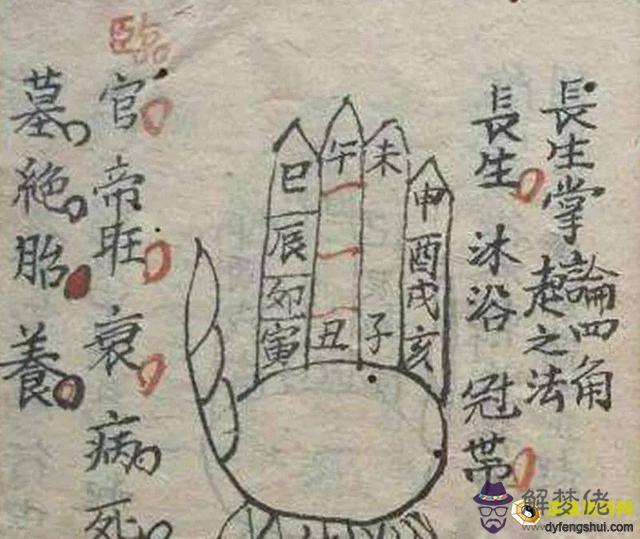 長生掌論四角
起之法
長生 沐浴 冠帶
臨官 帝旺 衰 病 死
墓 絶 胎 養
巳 午 未 申
辰 酉
卯 戌
寅 丑 子 亥
解梦佬
www.dyfengshui.com